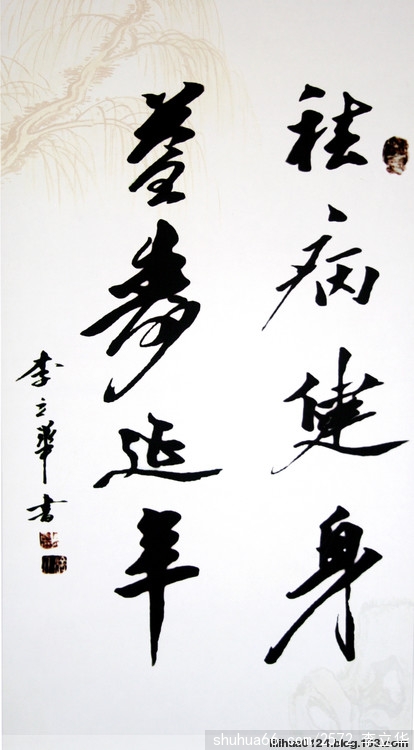 祛病健身
益寿延年
李立華书
shuhua66.com/2572 李立华
lilihua0124.blog.163.com